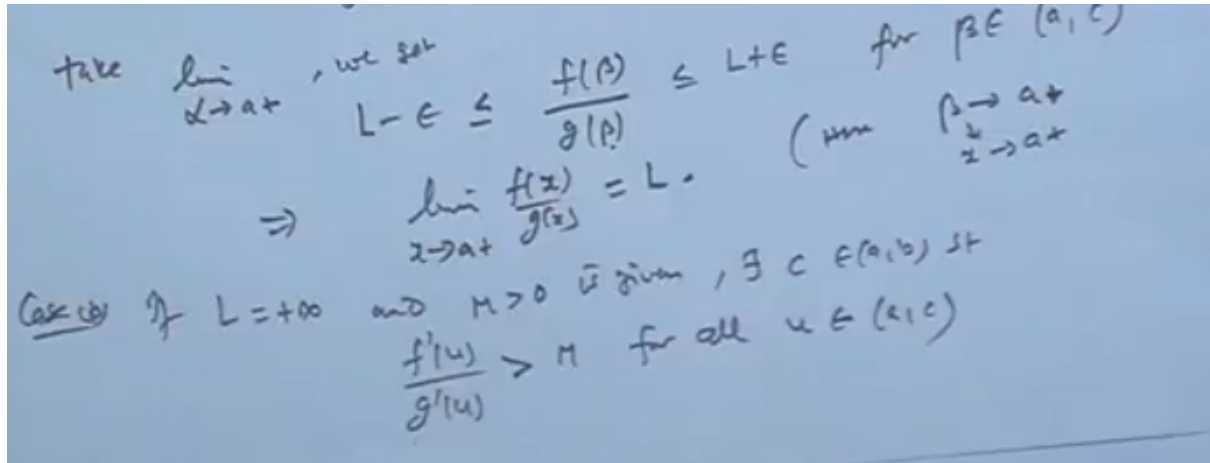 take lim α→a+ , we get L-ε ≤ f(β)/g(β) ≤ L+ε for β∈ (a, c)
⇒ lim x→a+ f(x)/g(x) = L. ( Here β→a+ x→a+
Case (b) If L=+∞ and M>0 is given, ∃ c ∈(a,b) st
f'(u)/g'(u) > M for all u ∈ (a,c)